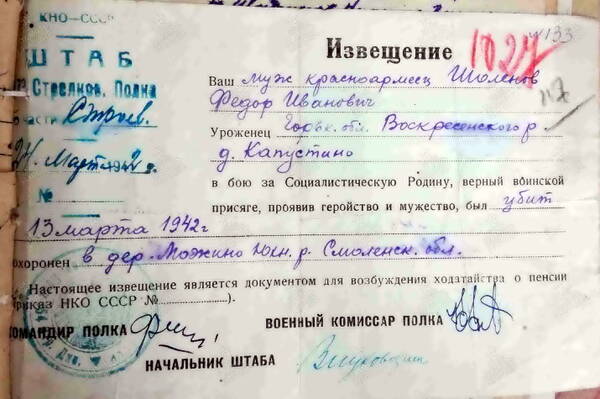 НКО-СССР
ШТАБ
Стрелков. Полка
части Строев.
24 Март 1942 г.
№
Извещение
1027
133
Ваш муж красноармеец Шоленов
Федор Иванович
Уроженец Горьк. обл. Воскресенского р
д. Капустино
в бою за Социалистическую Родину, верный воинской
присяге, проявив геройство и мужество, был убит
13 марта 1942г
охоронен в дер. Можино Юхн. р. Смоленск. обл.
Настоящее извещение является документом для возбуждения ходатайства о пенсии
риказ НКО СССР №).
ОМАНДИР ПОЛКА
ВОЕННЫЙ КОМИССАР ПОЛКА
НАЧАЛЬНИК ШТАБА